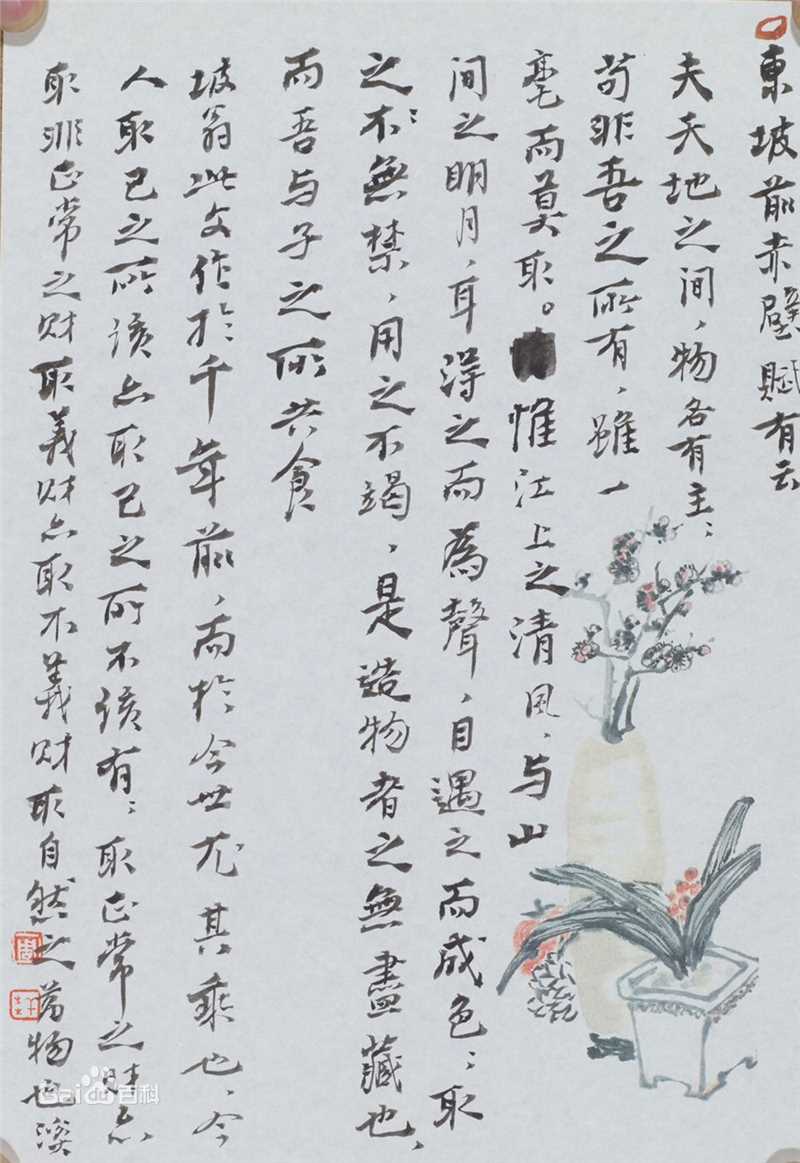 東坡前赤壁賦有云
夫天地之间，物各有主；
苟非吾之所有，雖一
毫而莫取。惟江上之清風，与山
间之明月，耳得之而為聲，目遇之而成色；取
之不無禁，用之不竭，是造物者之無盡藏也，
而吾与子之所共食
坡翁此文作於千年前，而於今世尤其乘也，今
人取己之所该亦取己之所不该有；取正常之财亦
取非正常之财取義财亦取不義财取自然之为物也
Bai 百科